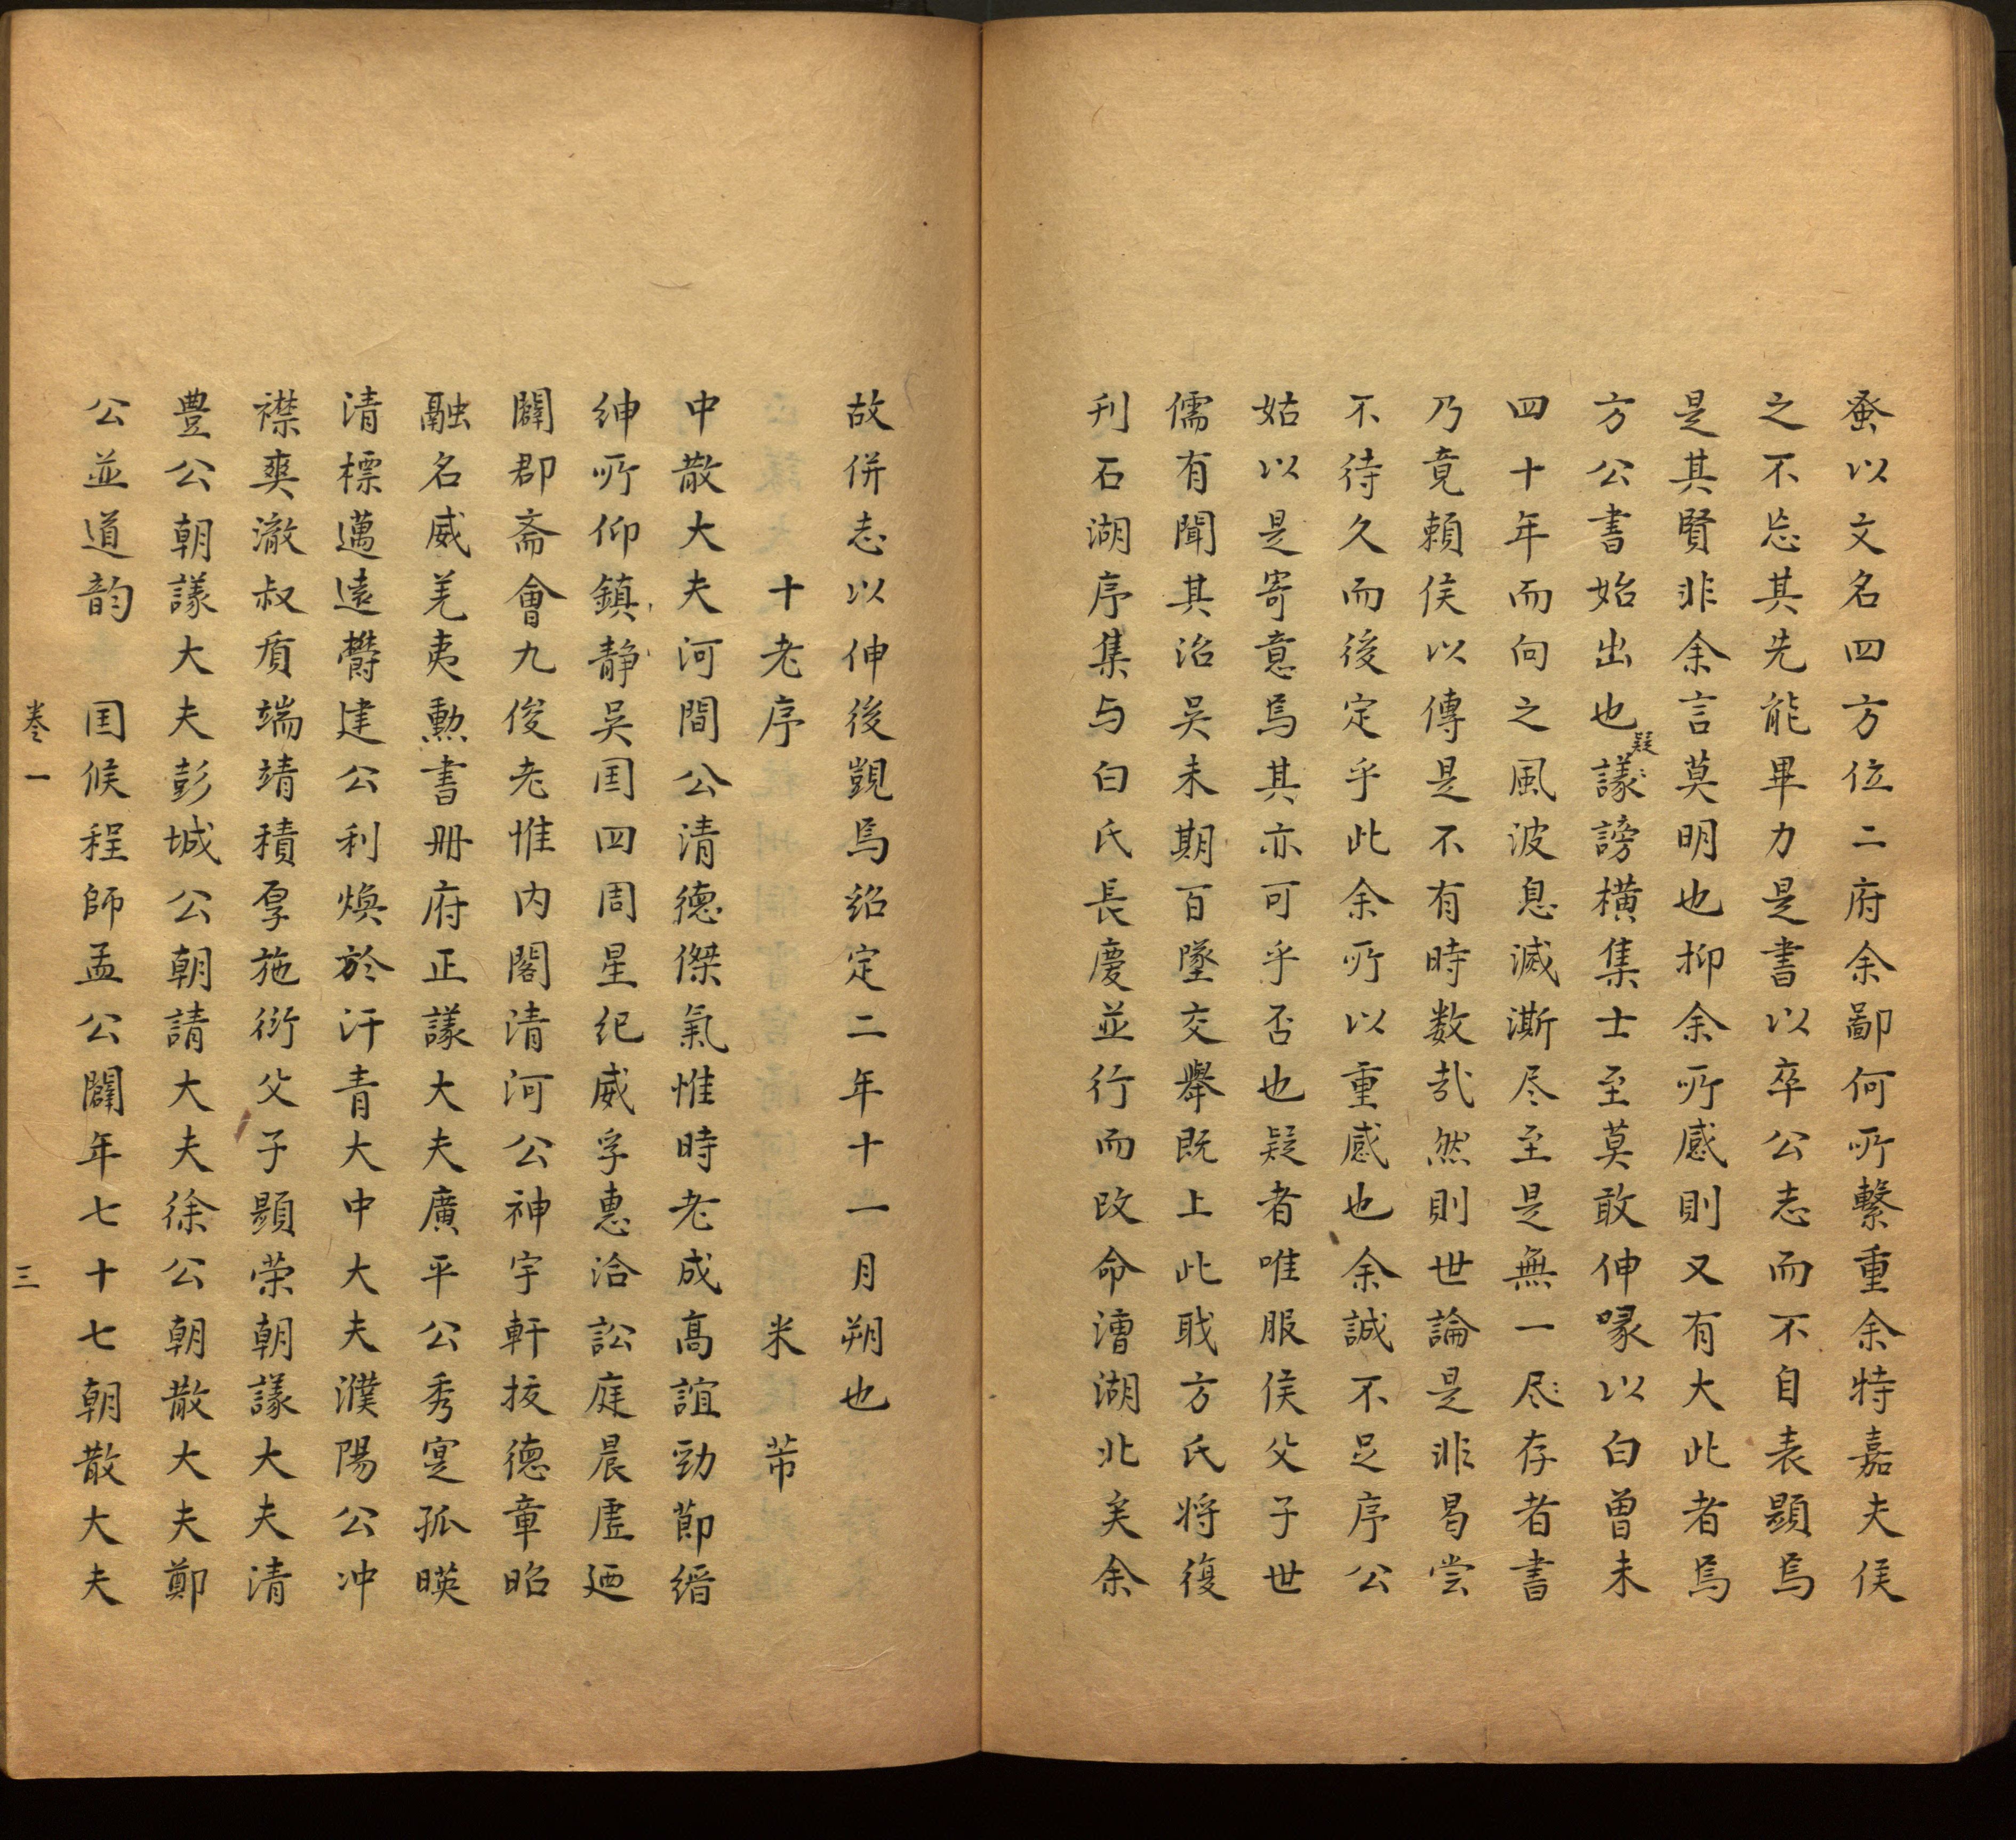 蚤以文名四方位二府余鄙何所繫重余特嘉夫侯
之不忘其先能畢力是書以卒公志而不自表顯焉
是其賢非余言莫明也抑余所感則又有大此者焉
方公書始出也疑議謗橫集士至莫敢伸喙以白曾未
四十年而向之風波息滅澌尽至是無一尽存者書
乃竟賴侯以傳是不有時数㢤然則世論是非曷尝
不待久而後定乎此余所以重感也余誠不足序公
姑以是寄意焉其亦可乎否也疑者唯服侯父子世
儒有聞其治吴未期百墜交舉既上此戝方氏将復
刋石湖序集与白氏長慶並行而改命漕湖北矣余
故併志以伸後覬焉紹定二年十一月朔也
十老序 米芾
中散大夫河間公清德傑氣惟時老成高誼勁節縉
紳所仰鎮静吴国四周星纪威孚惠洽訟庭晨虚廼
闢郡斋會九俊老惟内閣清河公神宇軒抜德章昭
融名威羌夷勲書冊府正議大夫廣平公秀寔孤暎
清標邁遠欝建公利煥於汗青大中大夫濮陽公冲
襟爽澈叔質端靖積厚施衍父子顯荣朝議大夫清
豊公朝議大夫彭城公朝請大夫徐公朝散大夫鄭
公並道韵 国候程師孟公闢年七十七朝散大夫
卷一 三